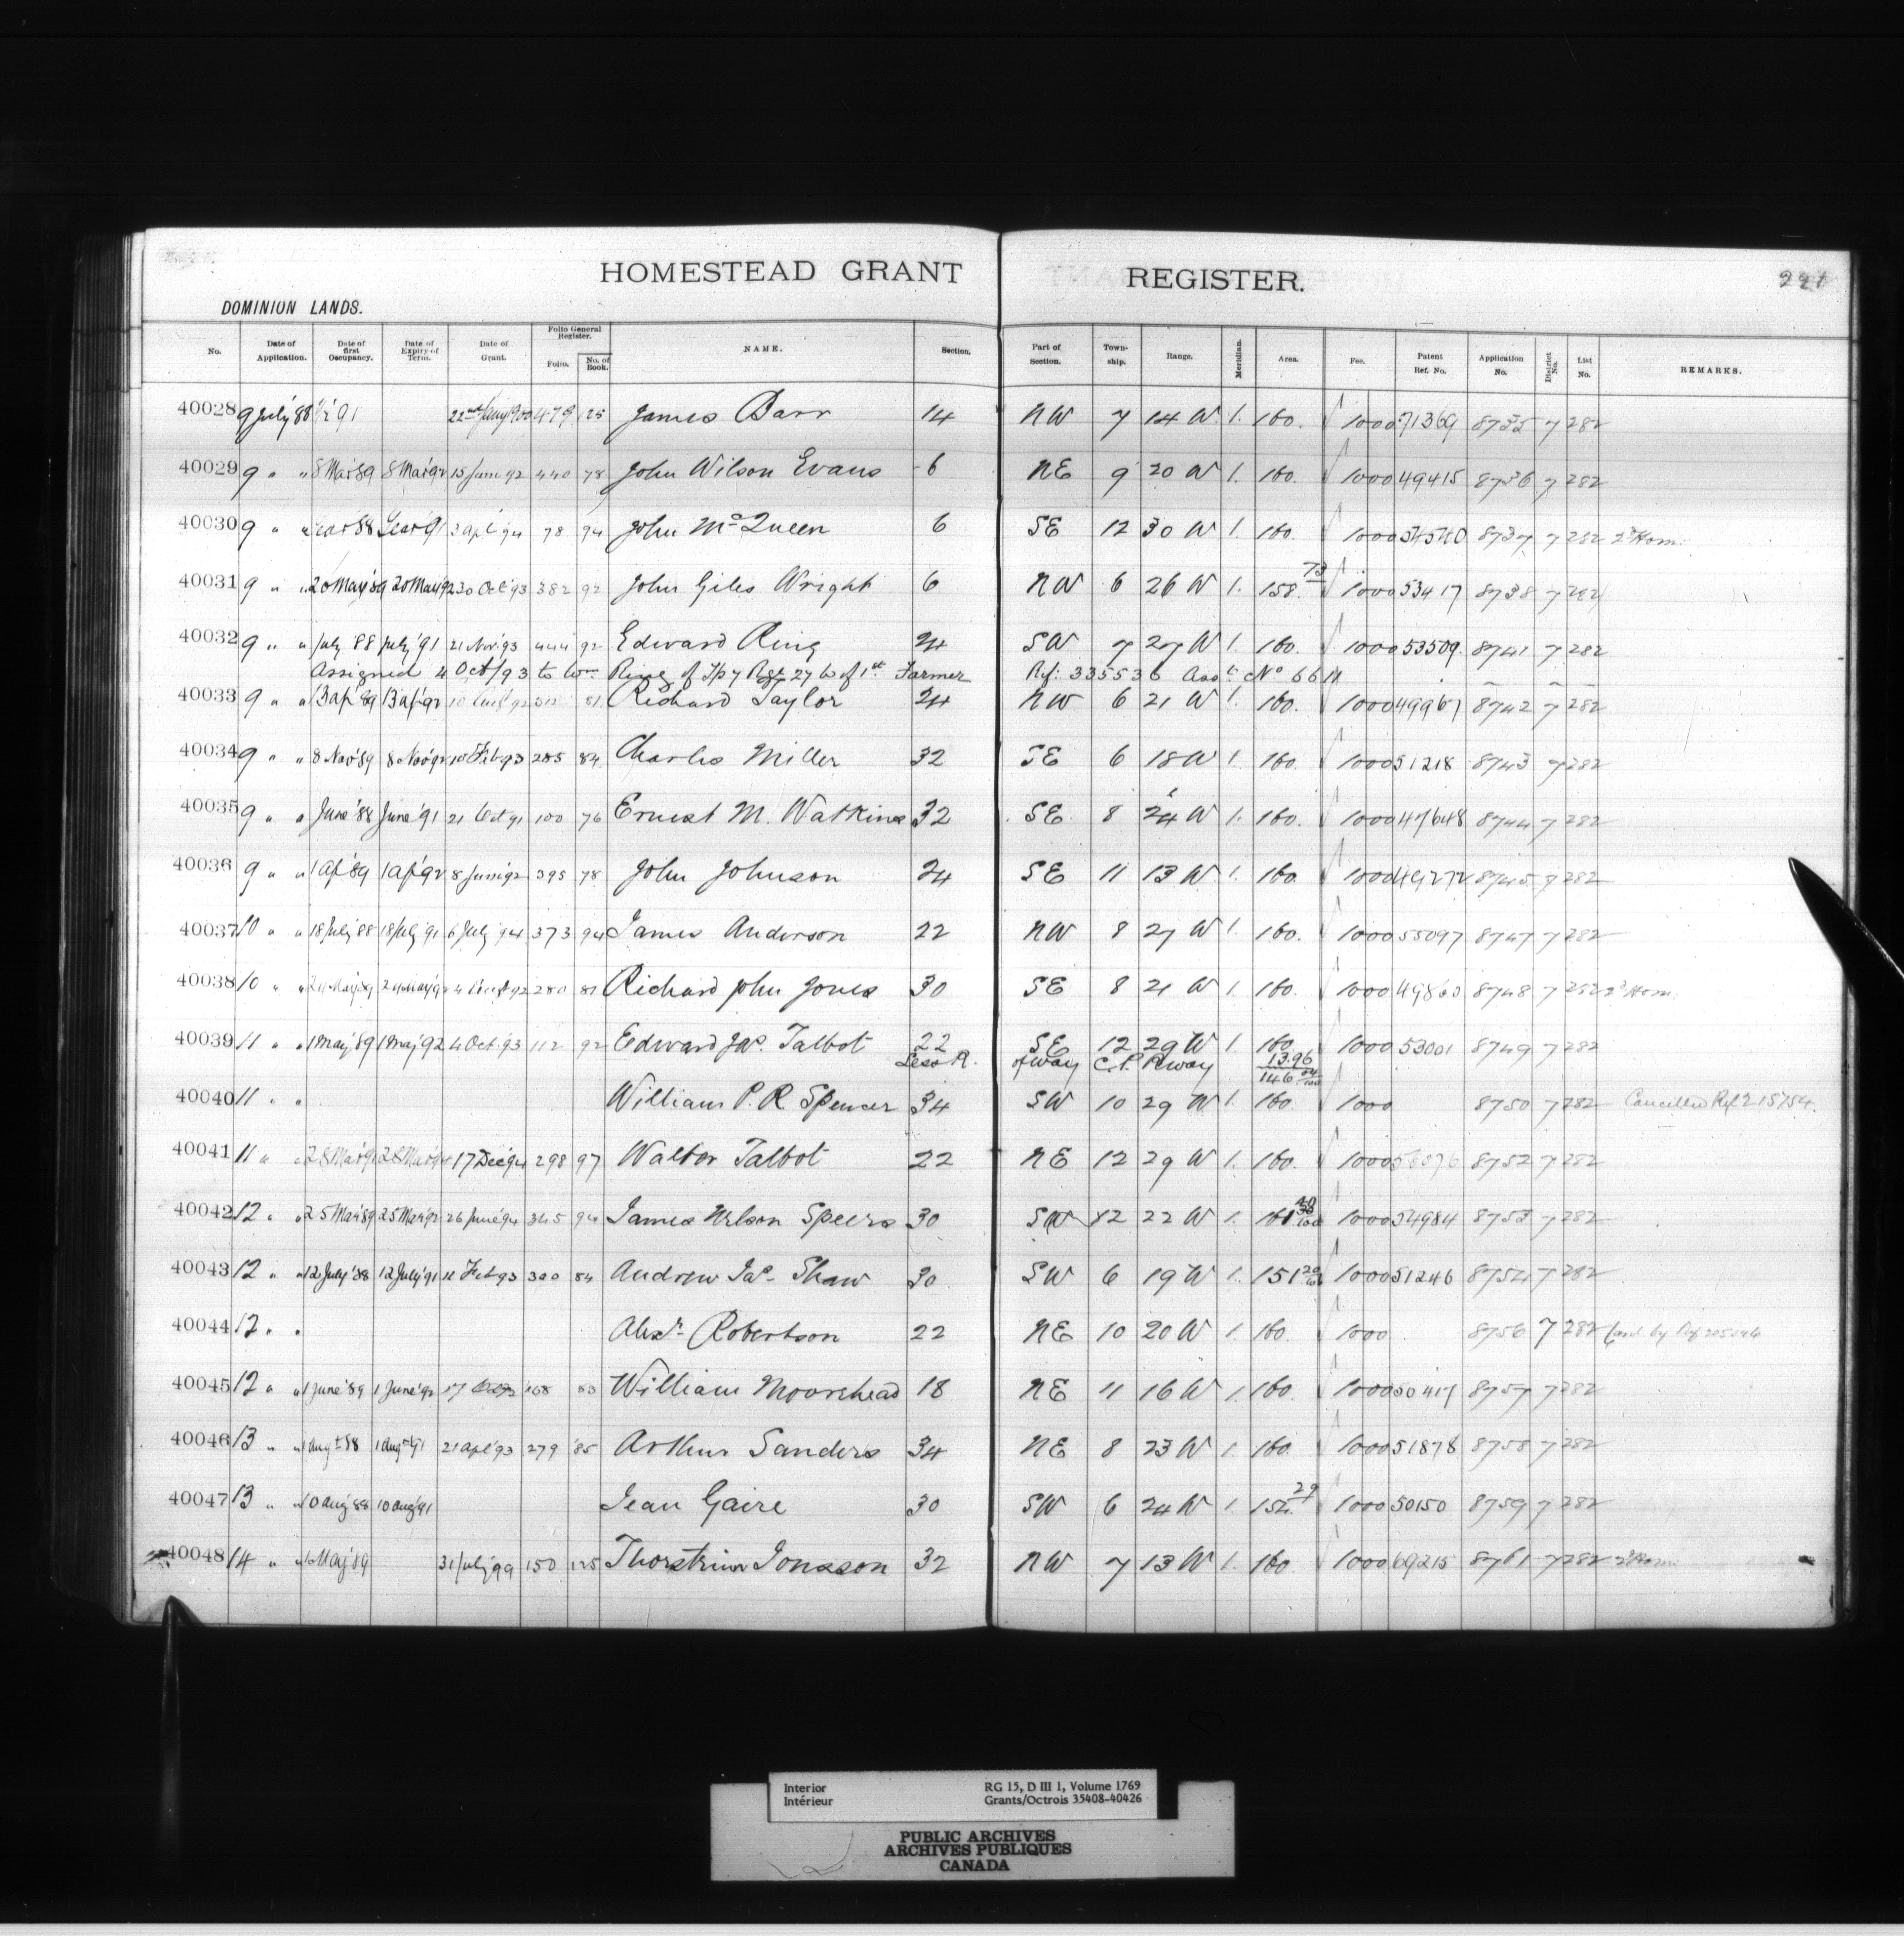 HOMESTEAD GRANT REGISTER. 221
DOMINION LANDS.
No. Date of Application. Date of first Occupancy. Date of Expiry of Term. Date of Grant. Folio General Register. Folio. No. of Book. NAME. Section. Part of Section. Township. Range. Meridian. Area. Fee. Patent Ref. No. Application No. District No. List No. REMARKS.
40028 9 July '88 '91 479 125 James Barr 14 NW 7 14 W 1. 160. 1000 71369 8735 7 282
40029 9 " " 8 Mar '89 8 Mar '92 15 June 92 440 78 John Wilson Evans 6 NE 9 20 W 1. 160. 1000 49415 8736 7 282
40030 9 " " 3 Apl '94 78 94 John McQueen 6 SE 12 30 W 1. 160. 1000 54540 8737 7 282 2d Hom.
40031 9 " " 20 May '89 20 May '92 30 Oct '93 382 92 John Giles Wright 6 NW 6 26 W 1. 158.73 1000 53417 8738 7 282
40032 9 " " July '88 July '91 21 Nov. 93 444 92 Edward Ring 24 SW 7 27 W 1. 160. 1000 53509 8741 7 282
Assigned 4 Oct/93 to Wm Ring of Tp 7 Rge 27 W of 1st Farmer Ref: 335536 Asst No 66
40033 9 " " 13 Ap '89 13 Ap '92 81 Richard Taylor 24 NW 6 21 W 1. 160. 1000 49967 8742 7 282
40034 9 " " 8 Nov '89 8 Nov '92 10 Feb 93 285 84 Charles Miller 32 SE 6 18 W 1. 160. 1000 51218 8743 7 282
40035 9 " " June '88 June '91 21 Oct 91 100 76 Ernest M. Watkins 32 SE 8 24 W 1. 160. 1000 47648 8744 7 282
40036 9 " " 1 Ap '89 1 Ap '92 8 June 92 395 78 John Johnson 24 SE 11 13 W 1. 160. 1000 49272 8745 7 282
40037 10 " " 18 July '88 18 July '91 6 July '94 373 94 James Anderson 22 NW 8 27 W 1. 160. 1000 55097 8747 7 282
40038 10 " " 24 May 89 24 May 92 280 81 Richard John Jones 30 SE 8 21 W 1. 160. 1000 49860 8748 7 282 2d Hom.
40039 11 " " 1 May '89 1 May '92 4 Oct. 93 112 92 Edward Jas. Talbot 22 SE 12 29 W 1. 160. 1000 53001 8749 7 282
Less R. of Way C.P. Rway 13.96
146 04/100
40040 11 " " William P. R. Spencer 34 SW 10 29 W 1. 160. 1000 8750 7 282 Cancelled Ref 215754.
40041 11 " " 28 Mar '91 28 Mar '94 17 Dec '94 298 97 Walter Talbot 22 NE 12 29 W 1. 160. 1000 8752 7 282
40042 12 " " 25 Mar '89 25 Mar '92 26 June '94 345 94 James Nelson Speers 30 SW 12 22 W 1. 161 1000 54984 8753 7 282
40043 12 " " 12 July '88 12 July '91 11 Feb 93 300 84 Andrew Jas. Shaw 30 SW 6 19 W 1. 151 1000 51246 8754 7 282
40044 12 " " Alexr. Robertson 22 NE 10 20 W 1. 160. 1000 8756 7 282
40045 12 " " 1 June '89 1 June '92 17 168 83 William Moorehead 18 NE 11 16 W 1. 160. 1000 50417 8757 7 282
40046 13 " " 1 Augt 88 1 Augt 91 21 Apl '93 279 85 Arthur Sanders 34 NE 8 23 W 1. 160. 1000 51878 8758 7 282
40047 13 " " 10 Aug 88 10 Aug '91 Jean Gaire 30 SW 6 24 W 1. 152.29 1000 50150 8759 7 282
40048 14 " " 1 May '89 31 July '99 150 125 Thorsteinn Jonasson 32 NW 7 13 W 1. 160. 1000 69215 8761 7 282 2d Hom.
Interior RG 15, D III 1, Volume 1769
Intérieur Grants/Octrois 35408-40426
PUBLIC ARCHIVES
ARCHIVES PUBLIQUES
CANADA